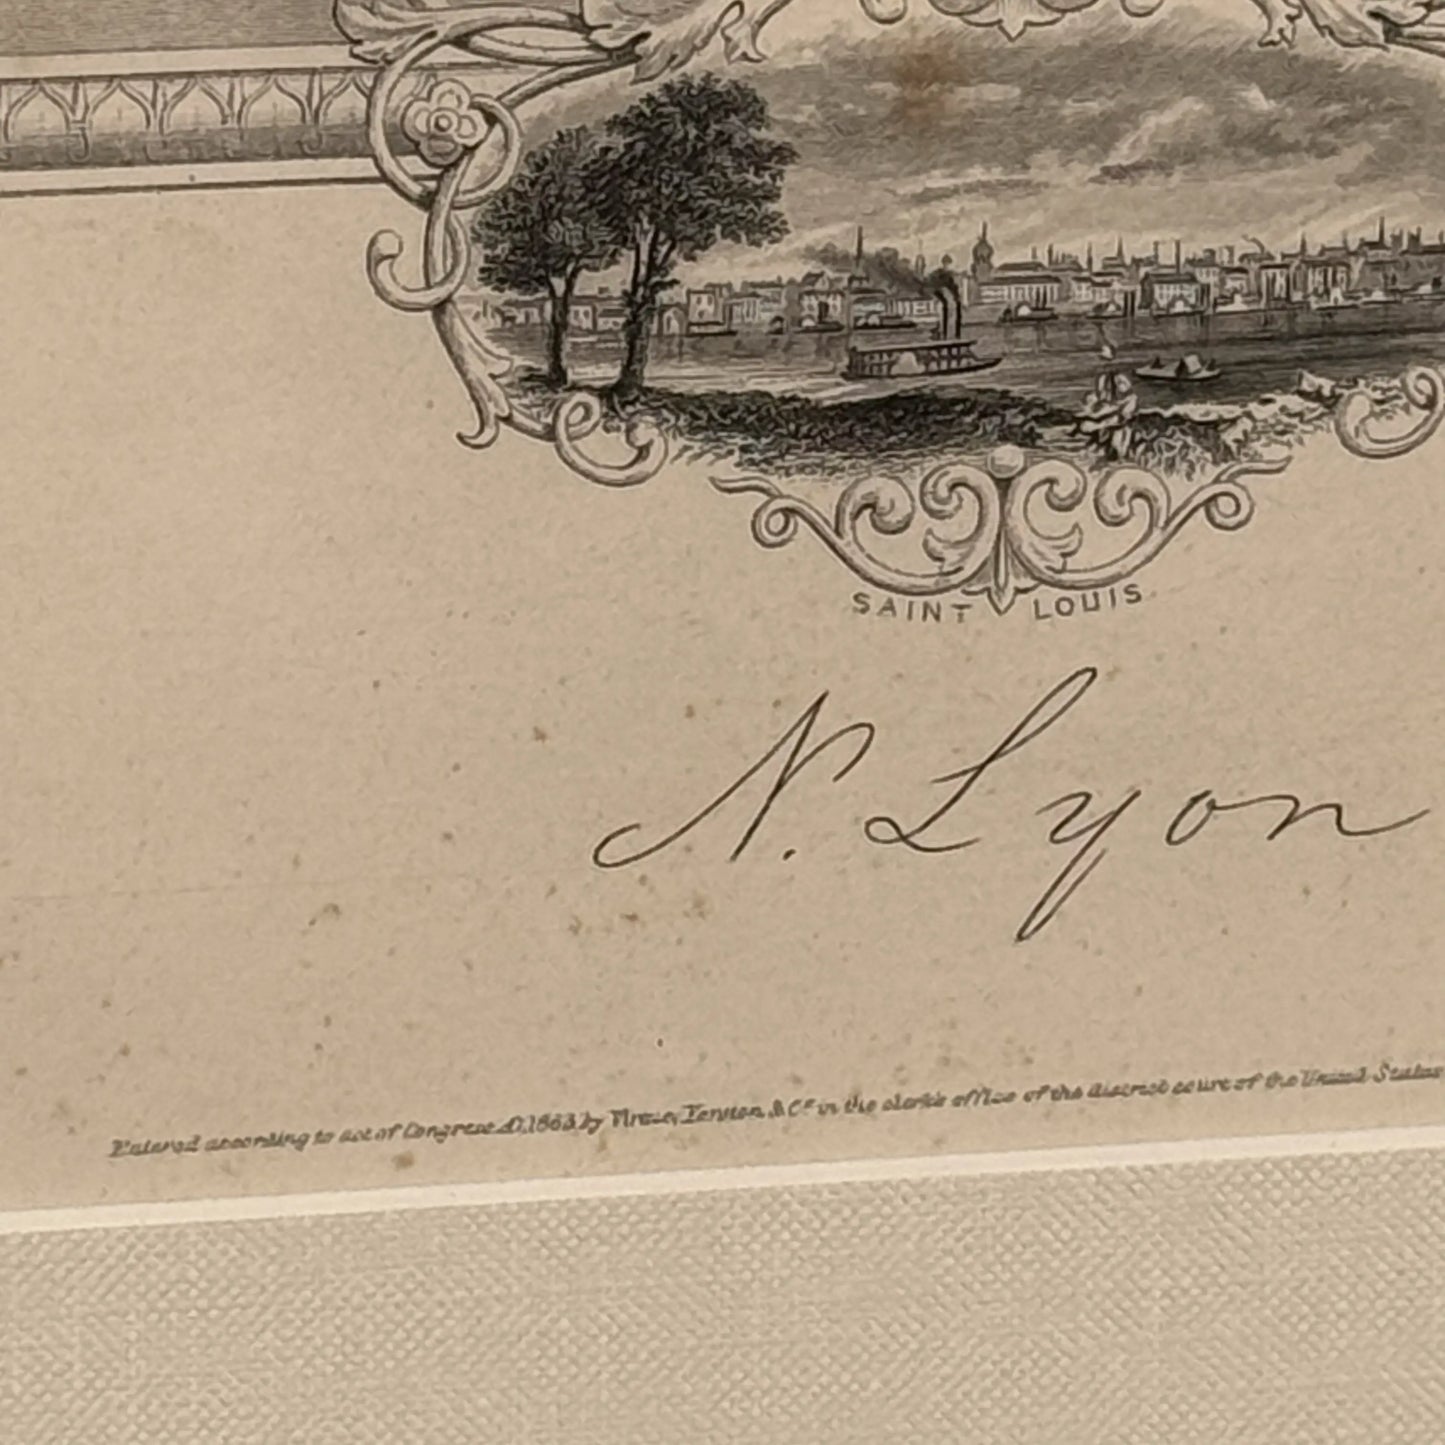 SAINT LOUIS
N. Lyon
Entered according to act of Congress AD. 1863 by Virtue, Yorston, & Co. in the clerk's office of the district court of the United States